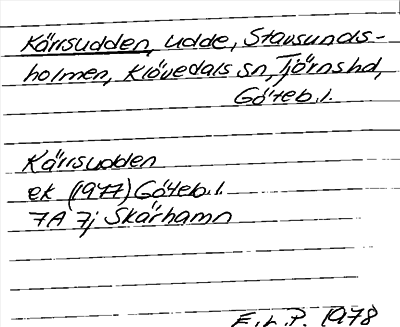 Kärrsudden, udde, Stavsunds-
holmen, Klövedals sn, Tjörns hd,
Göteb. l.
Kärrsudden
ek (1977) Göteb. l.
7A 7j Skärhamn
E. L. P. 1978